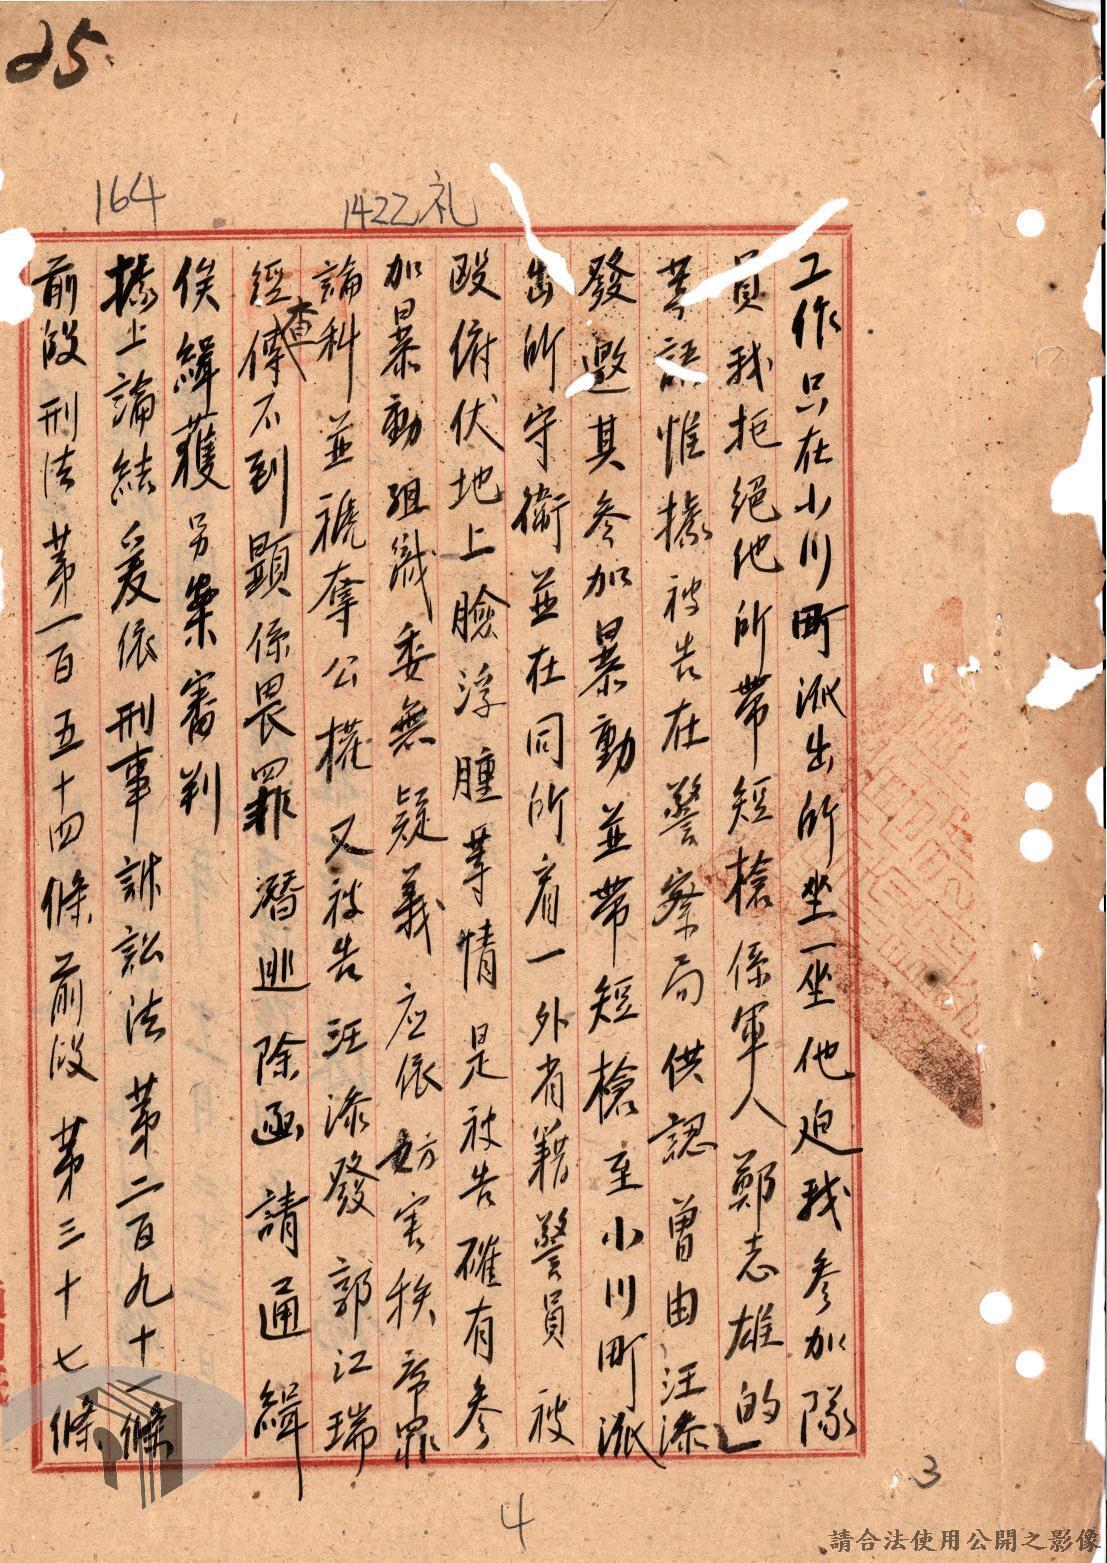 25
164
1422礼
工作只在小川町派出所坐一坐他迫我參加隊
員我拒絕他所帶短槍係軍人鄭志雄的」
等語惟據被告在警察局供認曾由汪添
發邀其參加暴動並帶短槍至小川町派
出所守衛並在同所看一外省籍警員被
毆俯伏地上臉浮腫等情是被告確有參
加暴動組織委無疑義應依妨害秩序罪
論科並褫奪公權又被告汪添發郭江瑞
經查傳不到顯係畏罪潛逃除函請通緝
俟緝獲另案審判
據上論結爰依刑事訴訟法第二百九十一條
前段刑法第一百五十四條前段第三十七條
3
4
請合法使用公開之影像